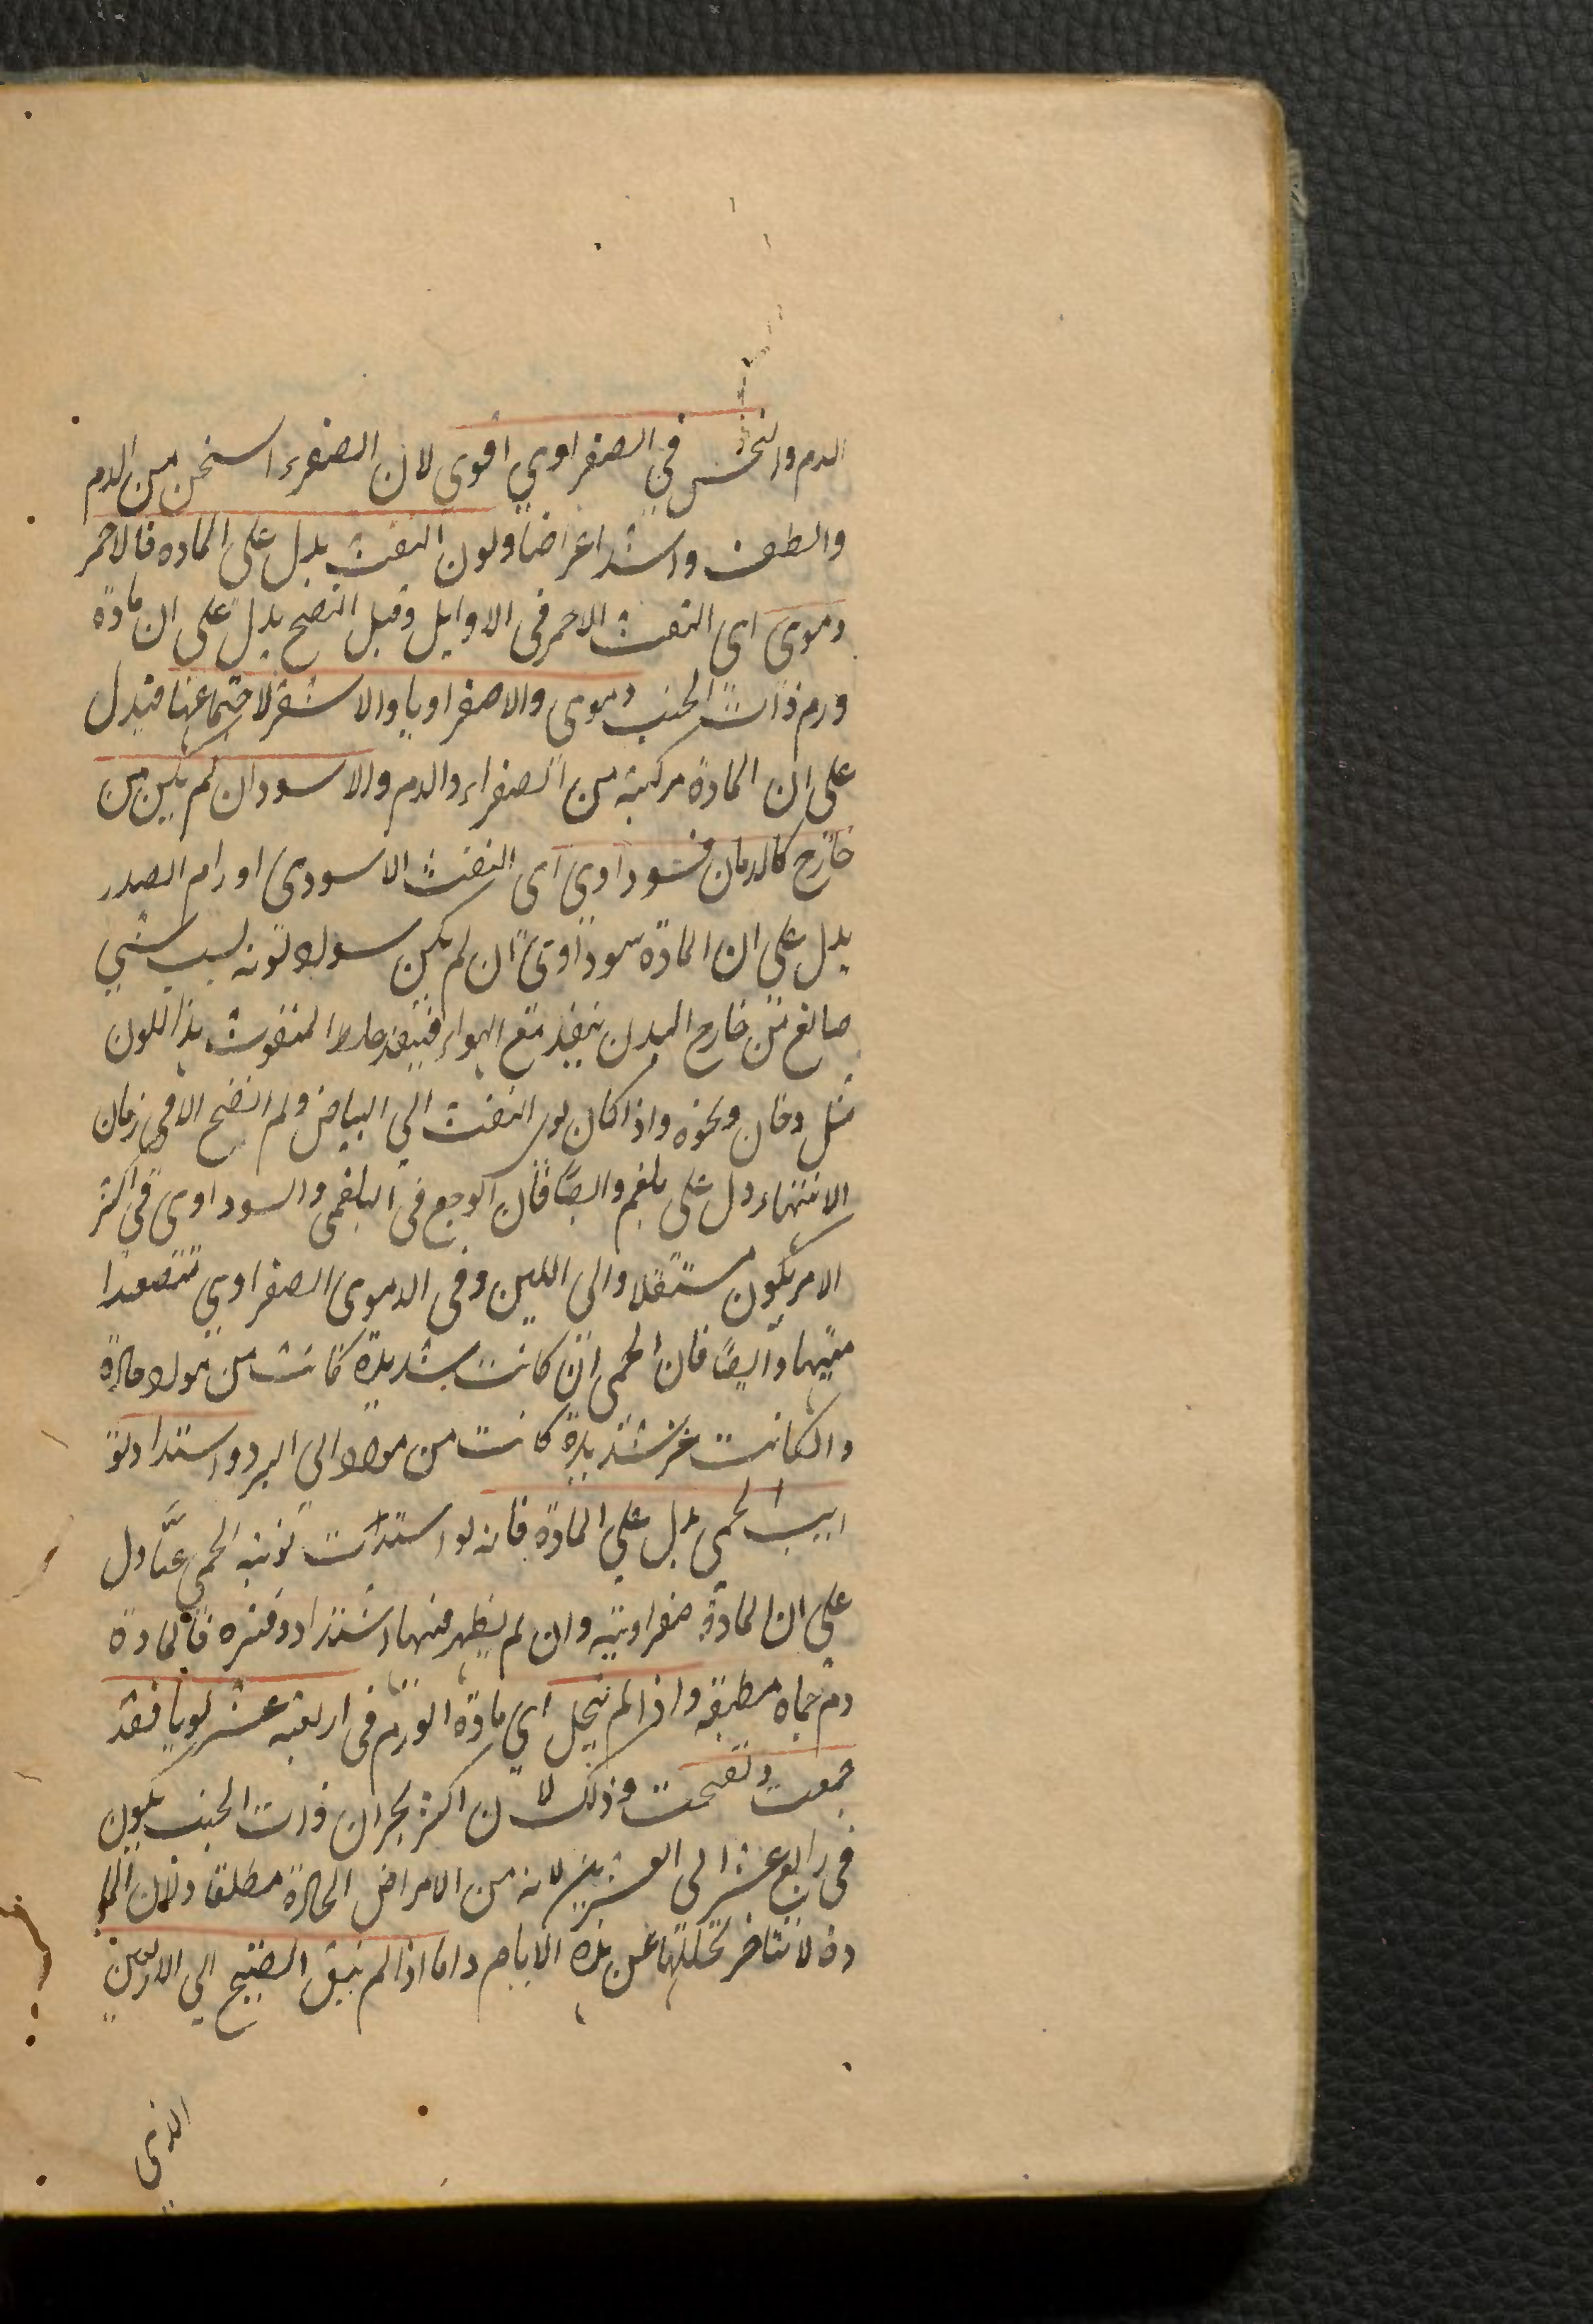 الدم والنخس في الصفراوي اقوى لان الصفراء اسخن من الدم
والطف واشد اعراضا ولون النفث يدل على المادة فالاحمر
دموى اى النفث الاحمر فى الاوايل وقبل النضج يدل على ان مادة
ورم ذات الجنب دموى والاصفراويا والاشقر لاجتماعهما فيدل
على ان المادة مركبة من الصفراء والدم والاسود ان لم يكن من
خارج كالدخان فسوداوى اى النفث الاسود فى اورام الصدر
يدل على ان المادة سوداوى ان لم يكن سواد لونه لسبب شي
صابغ من خارج البدن ينفذ مع الهواء المنفوث هذا اللون
مثل دخان ونحوه واذا كان لون النفث الي البياض ولم النضج الا فى زمان
الانتهاء دل على بلغم وايضا فان الوجع فى البلغمى والسوداوى فى اكثر
الامر يكون مستفلا والى اللين وفى الدموى الصفراوي متصعدا
وايضا فان الحمى ان كانت شديدة كانت من مواد حارة
وان كانت غير شديدة كانت من مواد الى البرد واشتداد نو
ايب الحمى يدل على المادة فانه لو اشتدت نوبة الحمى غبا دل
على ان المادة صفراوية وان لم يظهر منها اشتداد وفتره فالمادة
دم حماه مطبقه واذا لم تتحلل اي مادة الورم فى اربعة عشر يوما فقد
جمعت وتقيحت وذلك لان اكثر بحران ذات الجنب يكون
فى رابع عشر الى العشرين لانه من الامراض الحادة مطلقا ولان الما
دة لا تتاخر تحللها عن هذه الايام واما اذا لم ينق القيح الى الاربعين
الذى